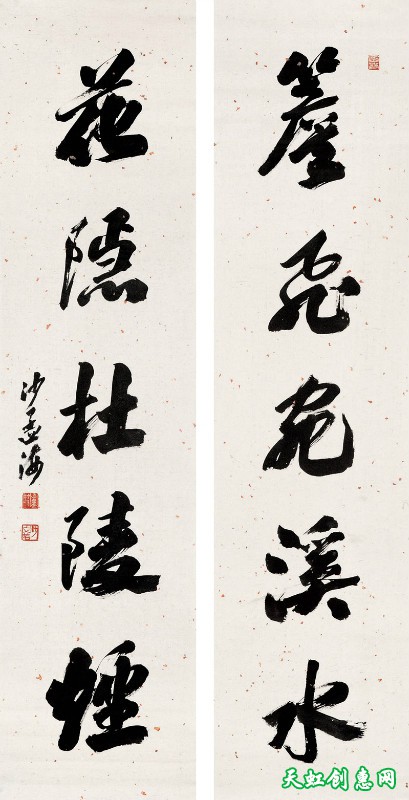 簷飛宛溪水
花隱杜陵煙
沙孟海
天虹创惠网